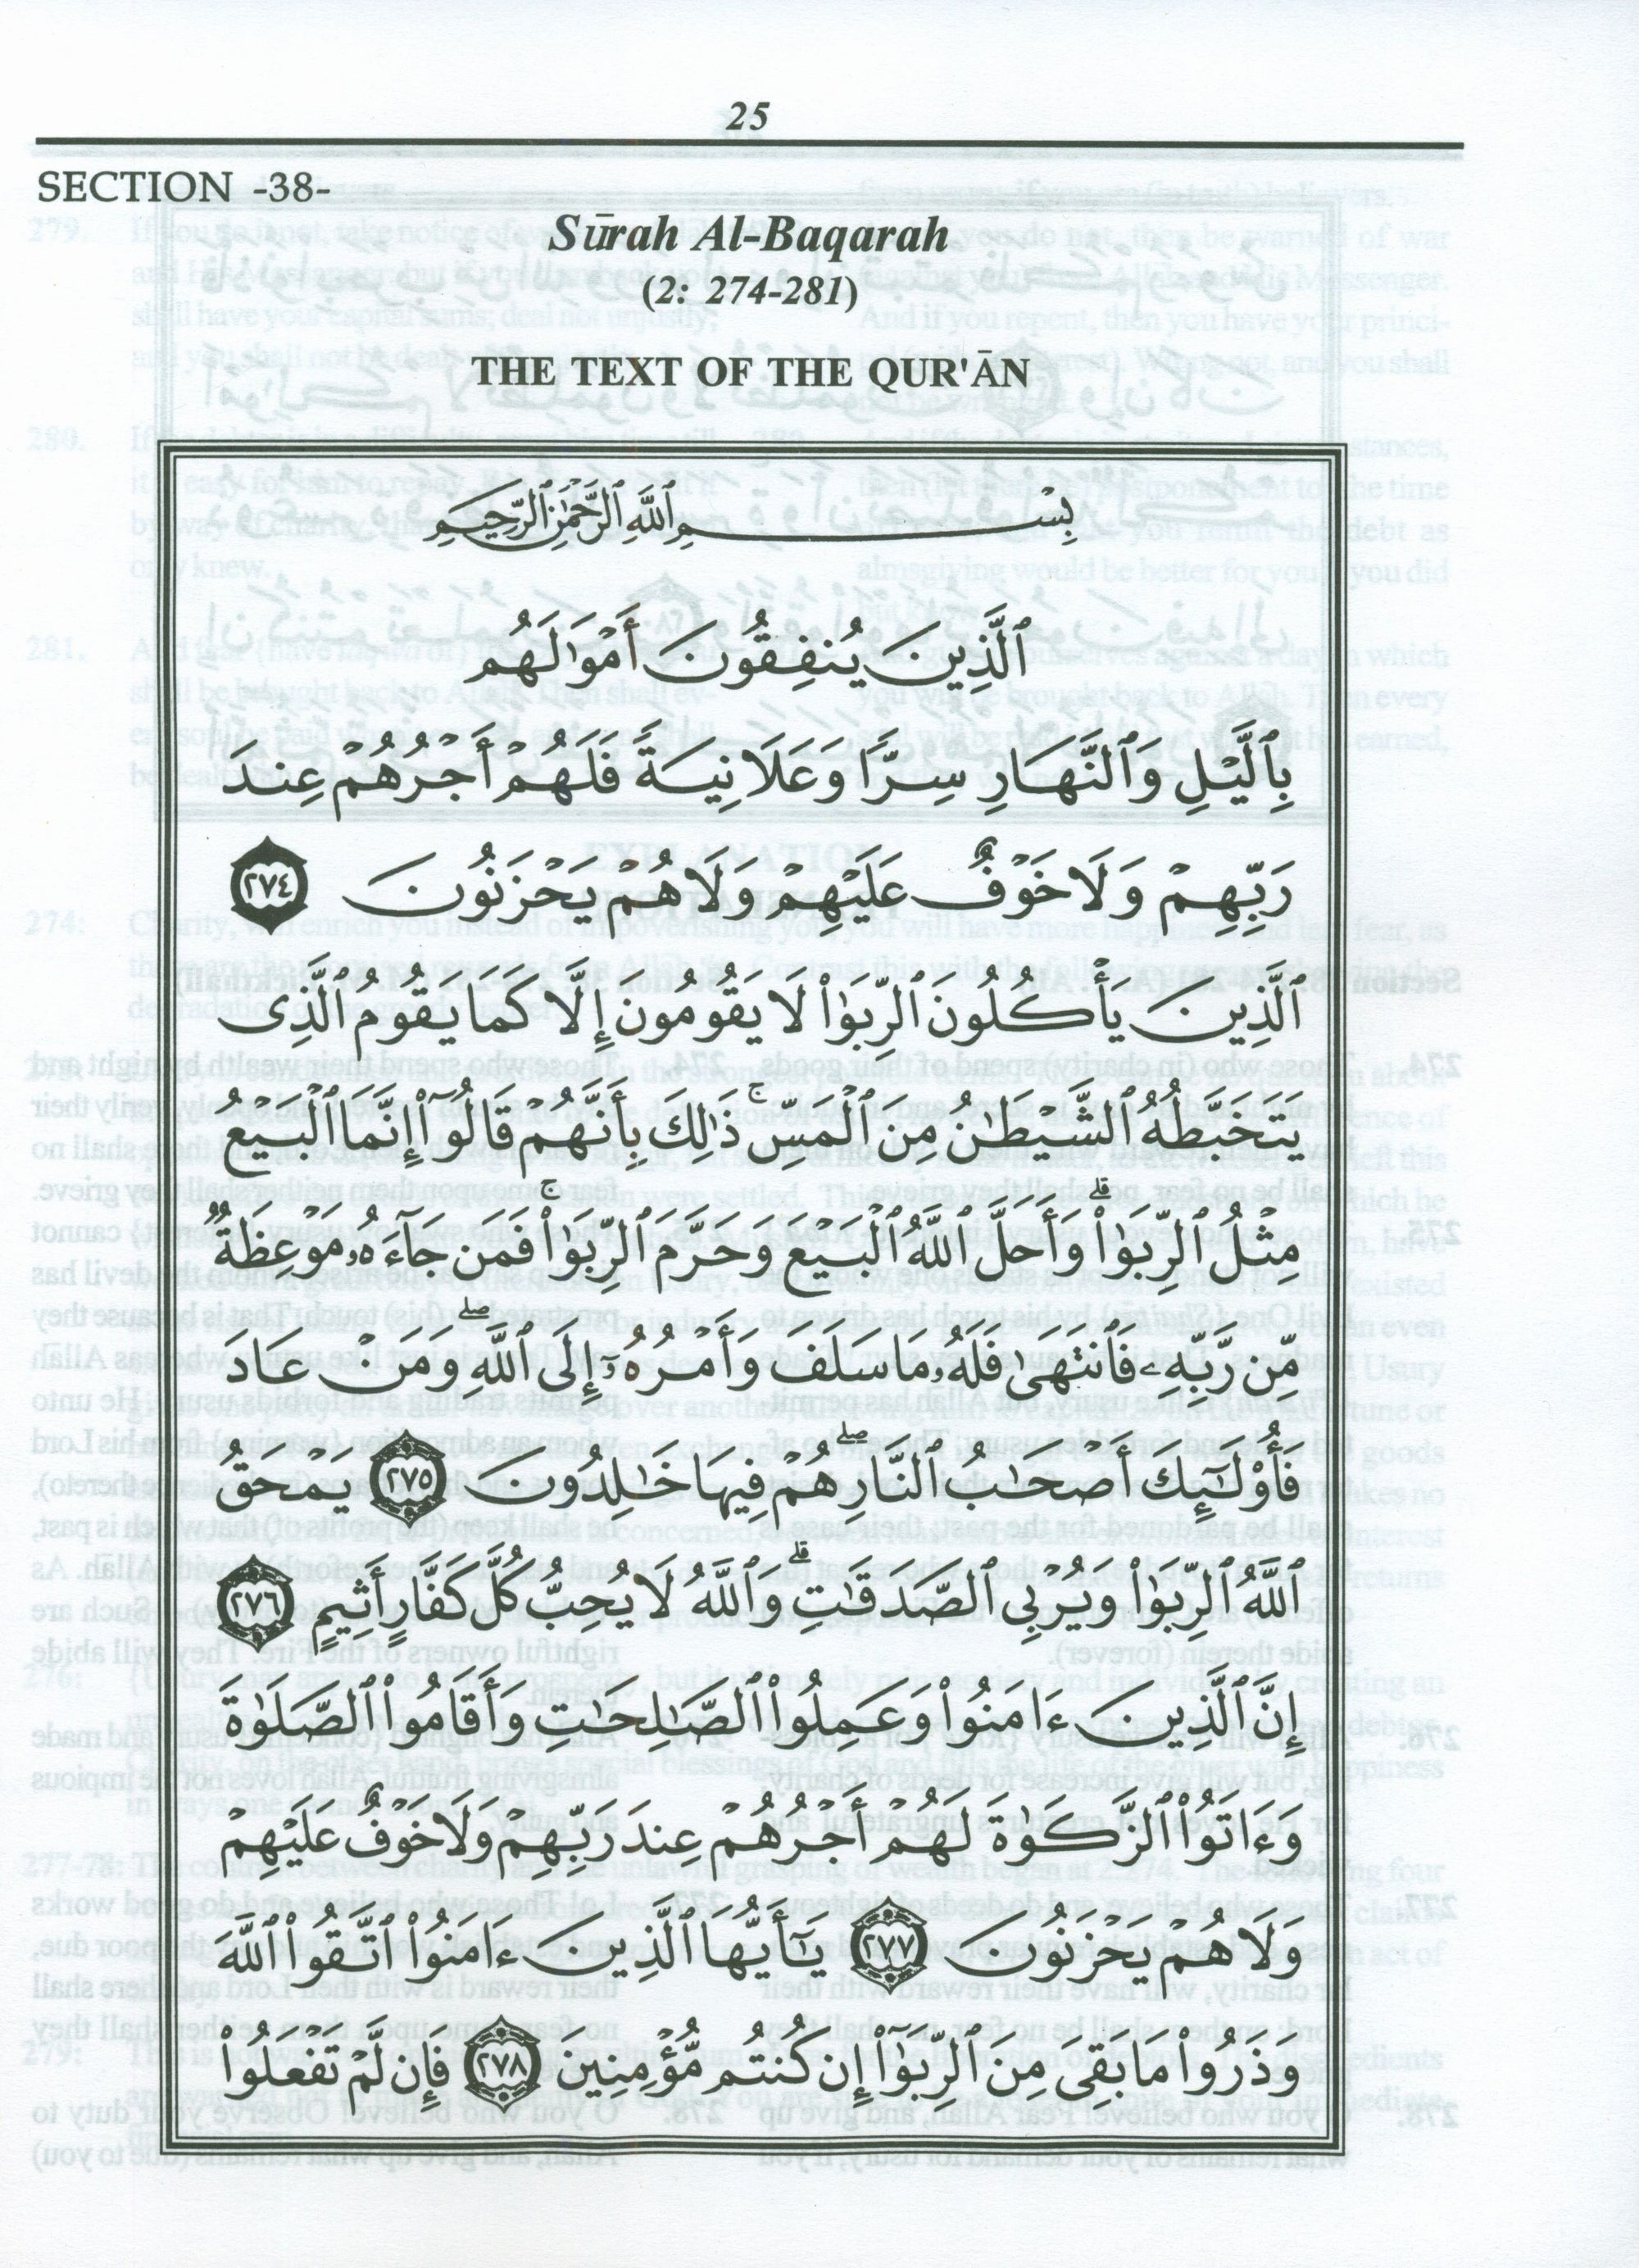 25
SECTION -38-
Sūrah Al-Baqarah
(2: 274-281)
THE TEXT OF THE QUR'ĀN
بِسْمِ ٱللَّهِ ٱلرَّحْمَٰنِ ٱلرَّحِيمِ
ٱلَّذِينَ يُنفِقُونَ أَمْوَٰلَهُم
بِٱلَّيْلِ وَٱلنَّهَارِ سِرًّا وَعَلَانِيَةً فَلَهُمْ أَجْرُهُمْ عِندَ
رَبِّهِمْ وَلَا خَوْفٌ عَلَيْهِمْ وَلَا هُمْ يَحْزَنُونَ ٢٧٤
ٱلَّذِينَ يَأْكُلُونَ ٱلرِّبَوٰا۟ لَا يَقُومُونَ إِلَّا كَمَا يَقُومُ ٱلَّذِى
يَتَخَبَّطُهُ ٱلشَّيْطَٰنُ مِنَ ٱلْمَسِّ ۚ ذَٰلِكَ بِأَنَّهُمْ قَالُوٓا۟ إِنَّمَا ٱلْبَيْعُ
مِثْلُ ٱلرِّبَوٰا۟ ۗ وَأَحَلَّ ٱللَّهُ ٱلْبَيْعَ وَحَرَّمَ ٱلرِّبَوٰا۟ ۚ فَمَن جَآءَهُۥ مَوْعِظَةٌ
مِّن رَّبِّهِۦ فَٱنتَهَىٰ فَلَهُۥ مَا سَلَفَ وَأَمْرُهُۥٓ إِلَى ٱللَّهِ ۖ وَمَنْ عَادَ
فَأُو۟لَٰٓئِكَ أَصْحَٰبُ ٱلنَّارِ ۖ هُمْ فِيهَا خَٰلِدُونَ ٢٧٥ يَمْحَقُ
ٱللَّهُ ٱلرِّبَوٰا۟ وَيُرْبِى ٱلصَّدَقَٰتِ ۗ وَٱللَّهُ لَا يُحِبُّ كُلَّ كَفَّارٍ أَثِيمٍ ٢٧٦
إِنَّ ٱلَّذِينَ ءَامَنُوا۟ وَعَمِلُوا۟ ٱلصَّٰلِحَٰتِ وَأَقَامُوا۟ ٱلصَّلَوٰةَ
وَءَاتَوُا۟ ٱلزَّكَوٰةَ لَهُمْ أَجْرُهُمْ عِندَ رَبِّهِمْ وَلَا خَوْفٌ عَلَيْهِمْ
وَلَا هُمْ يَحْزَنُونَ ٢٧٧ يَٰٓأَيُّهَا ٱلَّذِينَ ءَامَنُوا۟ ٱتَّقُوا۟ ٱللَّهَ
وَذَرُوا۟ مَا بَقِىَ مِنَ ٱلرِّبَوٰٓا۟ إِن كُنتُم مُّؤْمِنِينَ ٢٧٨ فَإِن لَّمْ تَفْعَلُوا۟